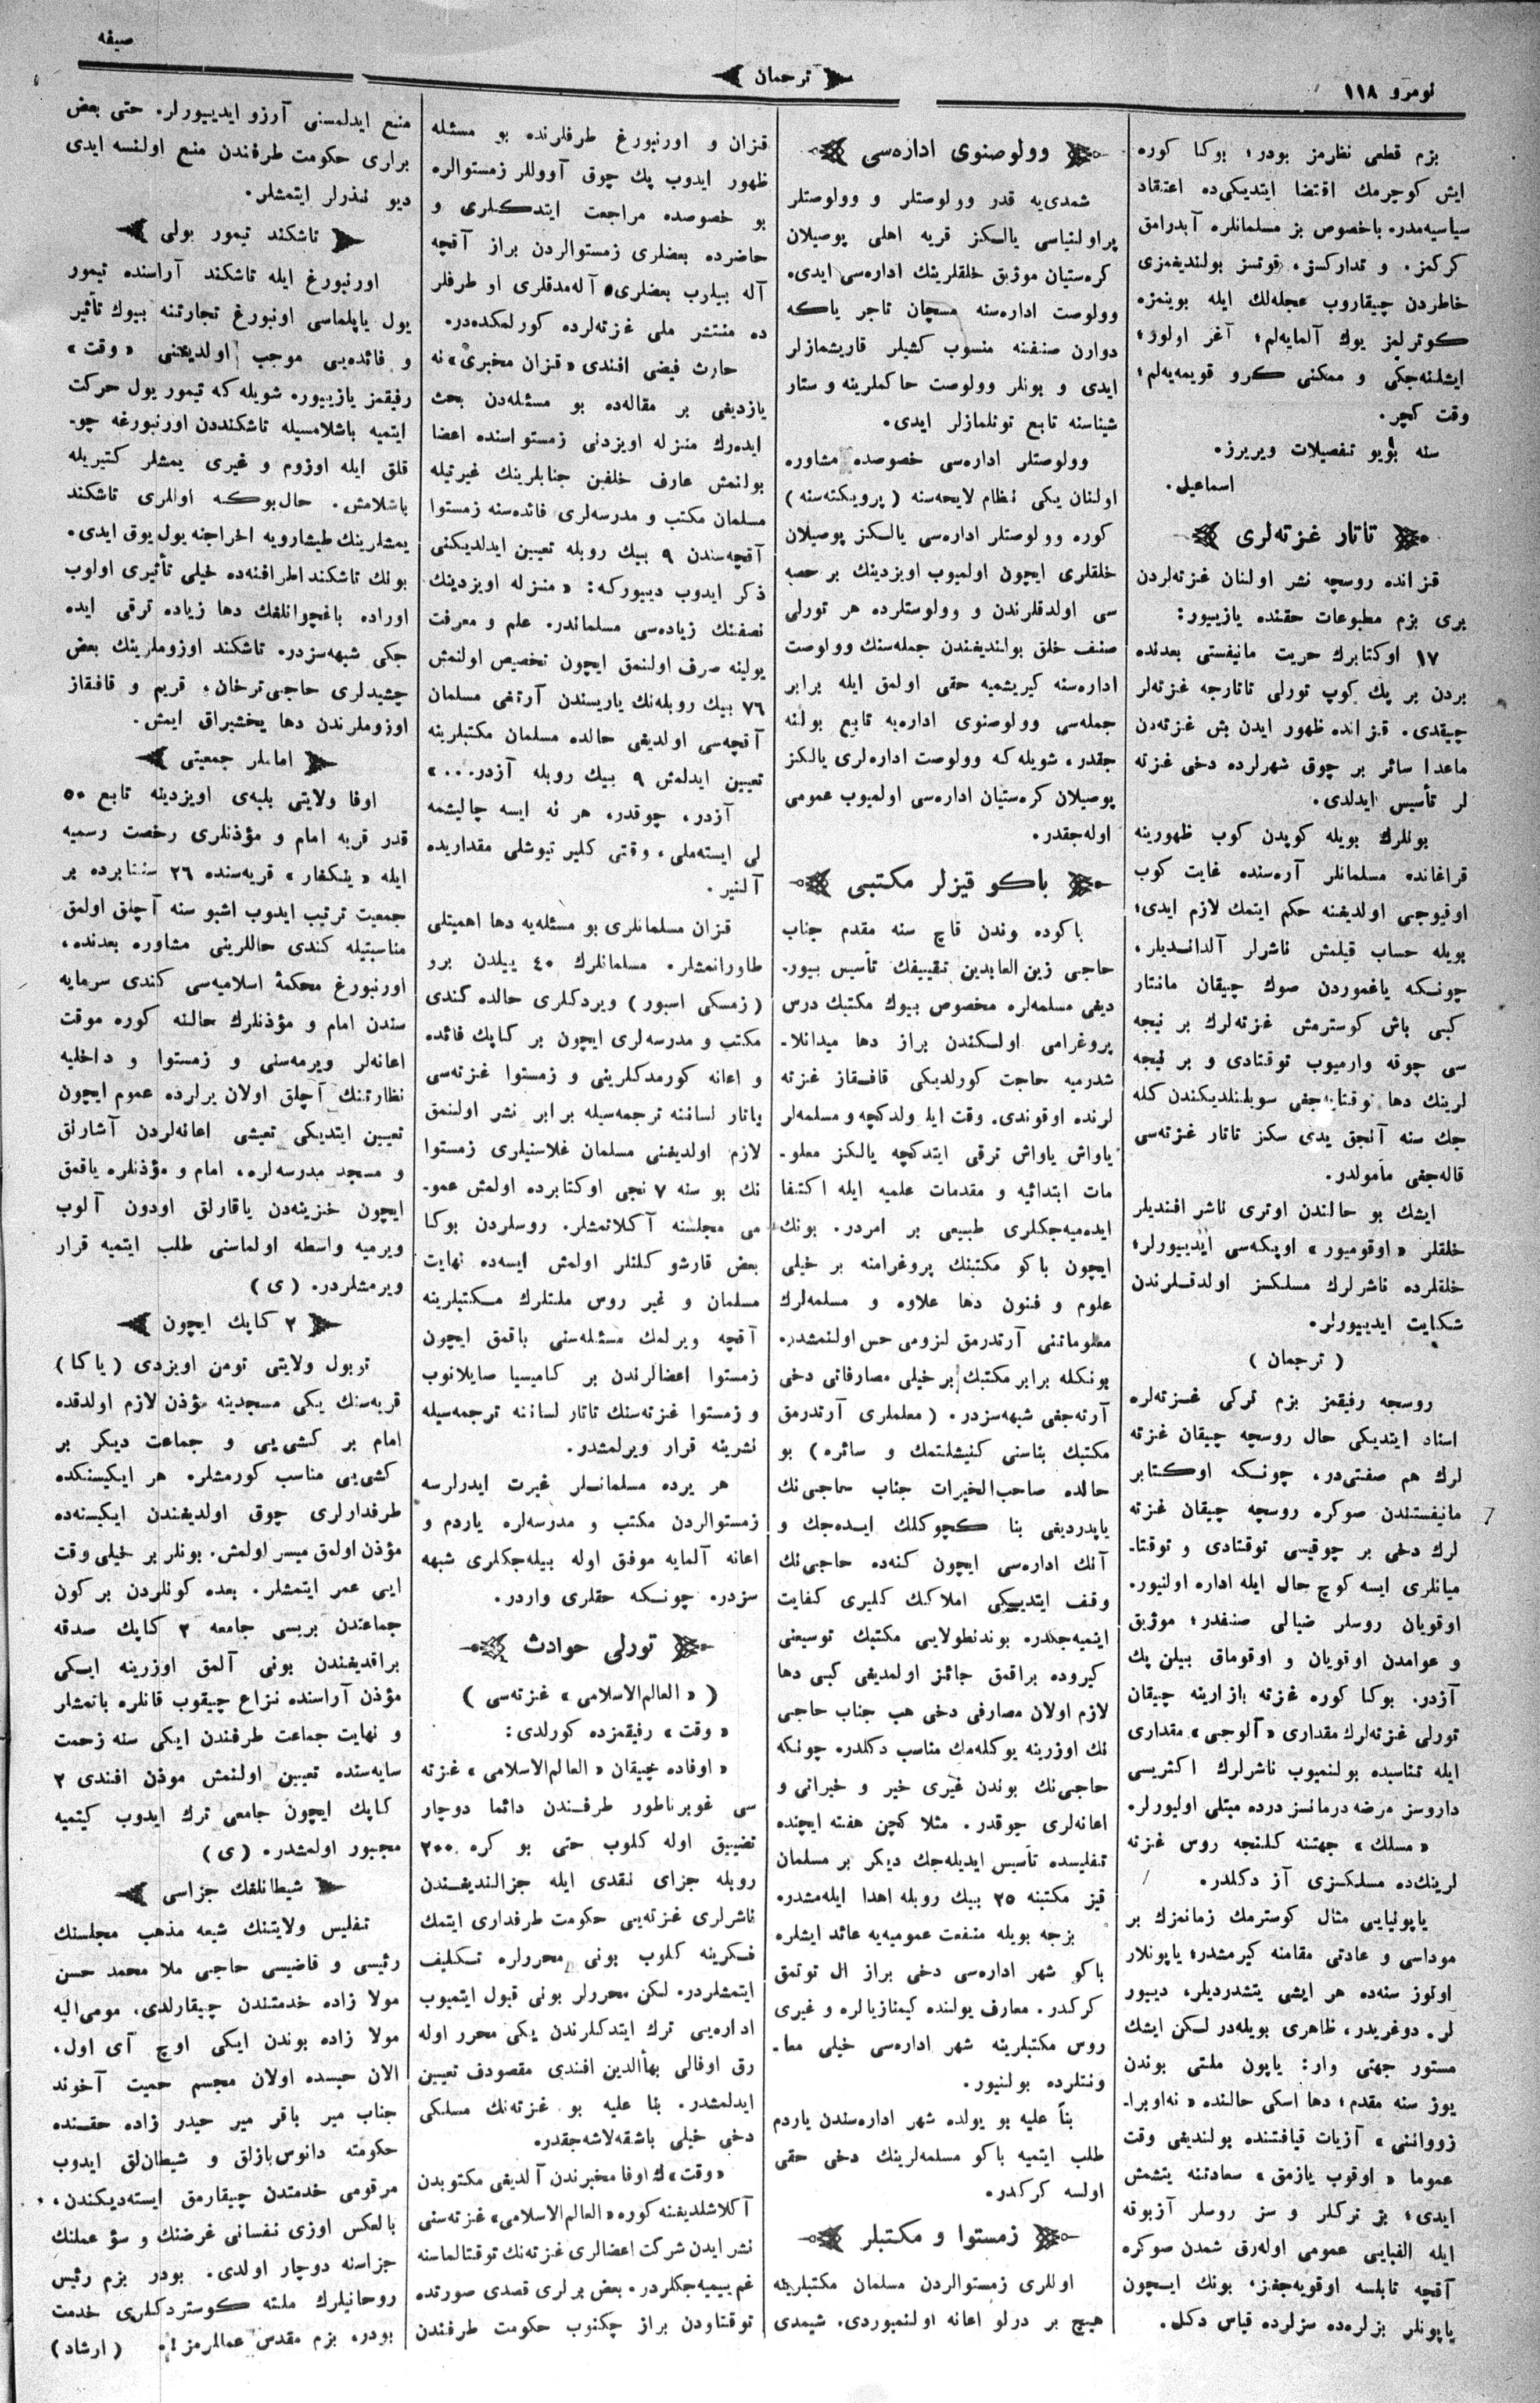 نومرو ١١٨
ترجمان
صيفه
بزم قطعی نظرمز بودر؛ بوكا كوره
ايش كوچرمك اقتضا ايتديكی‌ده اعتقاد
سياسيه‌مدر. باخصوص بز مسلمانلره آبدرامق
كركمز. و تداركسز، قوتسز بولنديغمزی
خاطردن چيقاروب عجله‌لك ايله بوينمزه
كوترلمز يوك آلمايه‌لم؛ آغز اولور؛
ايشلنه‌جكی و ممكنی كرو قويمه‌يه‌لم؛
وقت كچر.
سنه بويو تفصيلات ويريرز.
اسماعيل.
تاتار غزته‌لری
قزانده روسچه نشر اولنان غزته‌لردن
بری بزم مطبوعات حقنده يازييور:
١٧ اوكتابرك حريت مانيفستی بعدنده
بردن بر پك كوپ تورلی تاتارجه غزته‌لر
چيقدی. قزانده ظهور ايدن بش غزته‌دن
ماعدا سائر بر چوق شهرلرده دخی غزته
لر تأسيس ايدلدی.
بونلرك بويله كوپدن كوب ظهورينه
قراغانده مسلمانلر آره‌سنده غايت كوب
اوقيوجی اولديغنه حكم ايتمك لازم ايدی؛
بويله حساب قيلمش ناشرلر آلدانديلر.
چونكه ياغموردن صوك چيقان مانتار
كبی باش كوسترمش غزته‌لرك بر نيجه
سی چوقه وارميوب توقتادی و بر نيجه
لرينك دها توقتايه‌جغی سويلنلديكندن كله
جك سنه آنجق يدی سكز تاتار غزته‌سی
قاله‌جغی مأمولدر.
ايشك بو حالندن اوتری ناشر افنديلر
خلقلر «اوقوميور» اوپكه‌سی ايدييورلر؛
خلقلرده ناشرلرك مسلكسز اولدقلرندن
شكايت ايدييورلر.
( ترجمان )
روسجه رفيقمز بزم تركی غزته‌لره
اسناد ايتديكی حال روسچه چيقان غزته
لرك هم صفتی‌در، چونكه اوكتابر
مانيفستندن صوكره روسچه چيقان غزته
لرك دخی بر چوقيسی توقتادی و توقتا-
ميانلری ايسه كوچ حال ايله اداره اولنيور.
اوقويان روسلر ضيالی صنفدر؛ موژيق
و عوامدن اوقويان و اوقوماق بيلن پك
آزدر. بوكا كوره غزته بازارينه چيقان
تورلی غزته‌لرك مقداری «آلوجی» مقداری
ايله تناسبده بولنميوب ناشرلرك اكثريسی
داروسز مرضه درمانسز درده مبتلی اوليورلر.
«مسلك» جهتنه كلنجه روس غزته
لرينك‌ده مسلكسزی آز دكلدر.
ياپونيايی مثال كوسترمك زمانمزك بر
موداسی و عادتی مقامنه كيرمشدر؛ ياپونلار
اوتوز سنه‌ده هر ايشی يتشدرديلر، دييور
لر. دوغريدر، ظاهری بويله‌در لكن ايشك
مستور جهتی وار: ياپون ملتی بوندن
يوز سنه مقدم؛ دها اسكی حالنده «نه‌اوبرا-
زووانني» آزيات قيافتنده بولنديغی وقت
عموما «اوقوب يازمق» سعادتنه يتشمش
ايدی؛ بز تركلر و سز روسلر آزبوقه
ايله الفبايی عمومی اوله‌رق شمدن صوكره
آقچه تابلسه اوقويه‌جغز؛ بونك ايچون
ياپونلر بزلره‌ده سزلرده قياس دكل.
وولوصنوی اداره‌سی
شمدی‌يه قدر وولوستلر و وولوصتلر
پراولنياسی يالكز قريه اهلی پوصيلان
كره‌ستيان موژيق خلقلرينك اداره‌سی ايدی.
وولوصت اداره‌سنه مسچان تاجر ياكه
دوارن صنفنه منسوب كشيلر قاريشمازلر
ايدی و بونلر وولوصت حاكملرينه و ستار
شيناسنه تابع توتلمازلر ايدی.
وولوصتلر اداره‌سی خصوصده مشاوره
اولنان يكی نظام لايحه‌سنه ( پرويكته‌سنه )
كوره وولوصتلر اداره‌سی يالكز پوصيلان
خلقلری ايچون اولميوب اويزدينك بر حصه
سی اولدقلرندن و وولوستلرده هر تورلی
صنف خلق بولنديغندن جمله‌سنك وولوصت
اداره‌سنه كيريشميه حقی اولمق ايله برابر
جمله‌سی وولوصنوی اداره‌يه تابع بولنه
جقدر، شويله كه وولوصت اداره‌لری يالكز
پوصيلان كره‌ستيان اداره‌سی اولميوب عمومی
اوله‌جقدر.
باكو قيزلر مكتبی
باكوده وندن قاچ سنه مقدم جناب
حاجی زين العابدين تقييفك تأسيس بيور-
ديغی مسلمه‌لره مخصوص بيوك مكتبك درس
پروغرامی اولكندن براز دها ميدانلا-
شدرميه حاجت كورلديكی قافقاز غزته
لرنده اوقوندی. وقت ايله ولدكچه و مسلمه‌لر
ياواش ياواش ترقی ايتدكچه يالكز معلو-
مات ابتدائيه و مقدمات علميه ايله اكتفا
ايده‌ميه‌جكلری طبيعی بر امردر. بونك
ايچون باكو مكتبنك پروغرامنه بر خيلی
علوم و فنون دها علاوه و مسلمه‌لرك
معلوماتنی آرتدرمق لزومی حس اولنمشدر.
بونكله برابر مكتبك بر خيلی مصارفاتی دخی
آرته‌جغی شبهه‌سزدر. ( معلملری آرتدرمق
مكتبك بناسنی كنيشلتمك و سائره ) بو
حالده صاحب الخيرات جناب حاجی‌نك
ياپدرديغی بنا كچوكلك ايده‌جك و
آنك اداره‌سی ايچون كنه‌ده حاجی‌نك
وقف ايتديكی املاكك كليری كفايت
ايتميه‌جكدر. بوندنطولايی مكتبك توسيعنی
كيروده براقمق جائز اولمديغی كبی دها
لازم اولان مصارفی دخی هپ جناب حاجی
نك اوزرينه يوكله‌مك مناسب دكلدر. چونكه
حاجی‌نك بوندن غيری خير و خيراتی و
اعانه‌لری چوقدر. مثلا كچن هفته ايچنده
تفليسده تأسيس ايديله‌جك ديكر بر مسلمان
قيز مكتبنه ٢٥ بيك روبله اهدا ايله‌مشدر.
بزجه بويله منفعت عموميه‌يه عائد ايشلره
باكو شهر اداره‌سی دخی براز ال توتمق
كركدر. معارف يولنده كيمنازيالره و غيری
روس مكتبلرينه شهر اداره‌سی خيلی معا-
ونتلرده بولنيور.
بناً عليه بو يولده شهر اداره‌سندن ياردم
طلب ايتميه باكو مسلمه‌لرينك دخی حقی
اولسه كركدر.
زمستوا و مكتبلر
اوللری زمستوالردن مسلمان مكتبلرينه
هيچ بر درلو اعانه اولنميوردی. شيمدی
قزان و اورنبورغ طرفلرنده بو مسئله
ظهور ايدوب پك چوق آووللر زمستوالره
بو خصوصده مراجعت ايتدكلری و
حاضرده بعضلری زمستوالردن براز آقچه
آله بيلرب بعضلری‌ده آله‌مدقلری او طرفلر
ده منتشر ملی غزته‌لرده كورلمكده‌در.
حارث فيضی افندی «قزان مخبری» نه
يازديغی بر مقاله‌ده بو مسئله‌دن بحث
ايده‌رك منزله اويزدنی زمستواسنده اعضا
بولنمش عارف خلفين جنابلرينك غيرتيله
مسلمان مكتب و مدرسه‌لری فائده‌سنه زمستوا
آقچه‌سندن ٩ بيك روبله تعيين ايدلديكنی
ذكر ايدوب دييوركه: «منزله اويزدينك
نصفنك زياده‌سی مسلماندر. علم و معرفت
يولينه صرف اولنمق ايچون تخصيص اولنمش
٧٦ بيك روبله‌نك ياريسندن آرتغی مسلمان
آقچه‌سی اولديغی حالده مسلمان مكتبلرينه
تعيين ايدلمش ٩ بيك روبله آزدر...»
آزدر، چوقدر، هر نه ايسه چاليشمه
لی ايسته‌ملی، وقتی كلير تيوشلی مقداريده
آلنير.
قزان مسلمانلری بو مسئله‌يه دها اهميتلی
طاورانمشلر. مسلمانلرك ٤٠ ييلدن برو
( زمسكی اسبور ) ويردكلری حالده كندی
مكتب و مدرسه‌لری ايچون بر كاپك فائده
و اعانه كورمدكلرينی و زمستوا غزته‌سی
ياتار لساننه ترجمه‌سيله برابر نشر اولنمق
لازم اولديغنی مسلمان غلاسنيلری زمستوا
نك بو سنه ٧ نجی اوكتابرده اولمش عمو-
می مجلسنه آكلاتمشلر. روسلردن بوكا
بعض قارشو كلنلر اولمش ايسه‌ده نهايت
مسلمان و غير روس ملتلرك مكتبلرينه
آقچه ويرلمك مسئله‌سنی باقمق ايچون
زمستوا اعضالرندن بر كاميسيا صايلانوب
و زمستوا غزته‌سنك تاتار لساننه ترجمه‌سيله
نشرينه قرار ويرلمشدر.
هر يرده مسلمانلر غيرت ايدرلرسه
زمستوالردن مكتب و مدرسه‌لره ياردم و
اعانه آلمايه موفق اوله بيله‌جكلری شبهه
سزدر. چونكه حقلری واردر.
تورلی حوادث
( «العالم الاسلامی» غزته‌سی )
«وقت» رفيقمزده كورلدی:
«اوفاده چيقان «العالم الاسلامی» غزته
سی غوبرناطور طرفندن دائما دوچار
تضييق اوله كلوب حتی بو كره ٢٠٠
روبله جزای نقدی ايله جزالنديغندن
ناشرلری غزته‌يی حكومت طرفداری ايتمك
فكرينه كلوب بونی محررلره تكليف
ايتمشلردر. لكن محررلر بونی قبول ايتميوب
اداره‌يی ترك ايتدكلرندن يكی محرر اوله
رق اوفالی بهأالدين افندی مقصودف تعيين
ايدلمشدر. بنا عليه بو غزته‌نك مسلكی
دخی خيلی باشقه‌لاشه‌جقدر.
«وقت»ك اوفا مخبرندن آلديغی مكتوبدن
آكلاشلديغنه كوره «العالم الاسلامی» غزته‌سنی
نشر ايدن شركت اعضالری غزته‌نك توقتالماسنه
غم ييميه‌جكلردر. بعض برلری قصدی صورتده
توقتاودن براز چكنوب حكومت طرفندن
منع ايدلمسنی آرزو ايدييورلر. حتی بعض
براری حكومت طرفندن منع اولنسه ايدی
ديو نذرلر ايتمشلر.
تاشكند تيمور يولی
اورنبورغ ايله تاشكند آراسنده تيمور
يول ياپلماسی اونبورغ تجارتنه بيوك تأثير
و فائده‌یی موجب اولديغنی «وقت»
رفيقمز يازييور. شويله كه تيمور يول حركت
ايتميه باشلامسيله تاشكنددن اورنبورغه چو-
قلق ايله اوزوم و غيری يمشلر كتيريله
باشلامش. حال بوكه اوللری تاشكند
يمشلرينك طيشارويه اخراجنه يول يوق ايدی.
بونك تاشكند اطرافنه‌ده خيلی تأثيری اولوب
اوراده باغچوانلقك دها زياده ترقی ايده
جكی شبهه‌سزدر. تاشكند اوزوملرينك بعض
چشيدلری حاجی‌ترخان، قريم و قافقاز
اوزوملرندن دها يخشيراق ايمش.
اماملر جمعيتی
اوفا ولايتی بلبه‌ی اويزدينه تابع ٥٠
قدر قريه امام و مؤذنلری رخصت رسميه
ايله «ينكفار» قريه‌سنده ٢٦ سنتابرده بر
جمعيت ترتيب ايدوب اشبو سنه آچلق اولمق
مناسبتيله كندی حاللرينی مشاوره بعدنده،
اورنبورغ محكمهٔ اسلاميه‌سی كندی سرمايه
سندن امام و مؤذنلرك حالنه كوره موقت
اعانه‌لر ويرمه‌سنی و زمستوا و داخليه
نظارتنك آچلق اولان يرلرده عموم ايچون
تعيين ايتديكی تعيشی اعانه‌لردن آشارلق
و مسجد مدرسه‌لره، امام و مؤذنلره ياقمق
ايچون خزينه‌دن ياقارلق اودون آلوب
ويرميه واسطه اولماسنی طلب ايتميه قرار
ويرمشلردر. ( ی )
٢ كاپك ايچون
تربول ولايتی تومن اويزدی ( ياكا )
قريه‌سنك يكی مسجدينه مؤذن لازم اولدقده
امام بر كشی‌يی و جماعت ديكر بر
كشی‌يی مناسب كورمشلر. هر ايكيسنكده
طرفدارلری چوق اولديغندن ايكيسنه‌ده
مؤذن اولمق ميسر اولمش. بونلر بر خيلی وقت
ايی عمر ايتمشلر. بعده كونلردن بر كون
جماعتدن بريسی جامعه ٢ كاپك صدقه
براقديغندن بونی آلمق اوزرينه ايكی
مؤذن آراسنده نزاع چيقوب قانلره باتمشلر
و نهايت جماعت طرفندن ايكی سنه زحمت
سايه‌سنده تعيين اولنمش موذن افندی ٢
كاپك ايچون جامعی ترك ايدوب كيتميه
مجبور اولمشدر. ( ی )
شيطانلقك جزاسی
تفليس ولايتنك شيعه مذهب مجلسنك
رئيسی و قاضيسی حاجی ملا محمد حسن
مولا زاده خدمتندن چيقارلدی. مومی‌اليه
مولا زاده بوندن ايكی اوچ آی اول،
الان حبسده اولان مجسم حميت آخوند
جناب مير باقر مير حيدر زاده حقنده
حكومته دانوس‌بازلق و شيطان‌لق ايدوب
مرقومی خدمتدن چيقارمق ايسته‌ديكندن،
بالعكس اوزی نفسانی غرضنك و سؤ عملنك
جزاسنه دوچار اولدی. بودر بزم رئيس
روحانيلرك ملته كوستردكلری خدمت
بودر، بزم مقدس عماللرمز!. ( ارشاد )